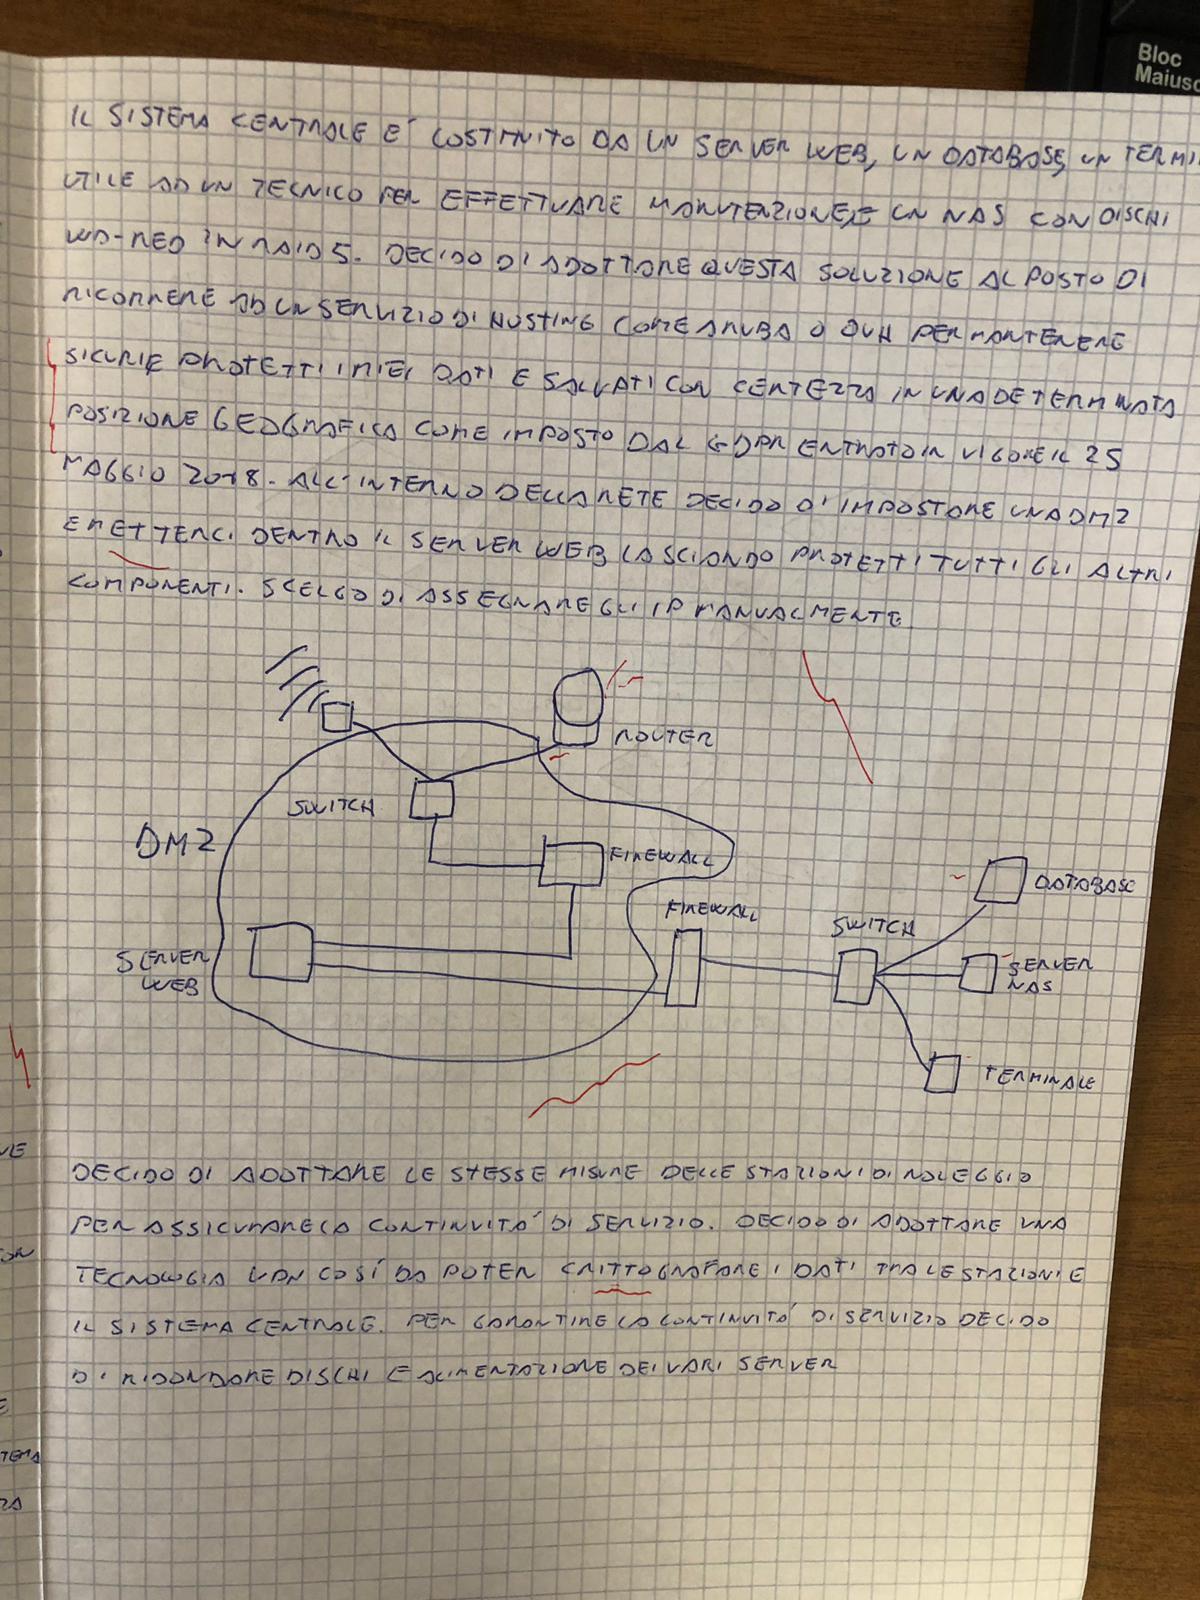 Bloc
Maiusc
IL SISTEMA CENTRALE E' COSTITUITO DA UN SERVER WEB, UN DATABASE, UN TERMI
UTILE AD UN TECNICO PER EFFETTUARE MANUTENZIONE, E UN NAS CON DISCHI
WD-RED IN RAID 5. DECIDO DI ADOTTARE QUESTA SOLUZIONE AL POSTO DI
RICORRERE AD UN SERVIZIO DI HOSTING COME ARUBA O OVH PER MANTENERE
SICURI E PROTETTI I MIEI DATI E SALVATI CON CERTEZZA IN UNA DETERMINATA
POSIZIONE GEOGRAFICA COME IMPOSTO DAL GDPR ENTRATO IN VIGORE IL 25
MAGGIO 2018. ALL'INTERNO DELLA RETE DECIDO DI IMPOSTARE UNA DMZ
E METTERCI DENTRO IL SERVER WEB LASCIANDO PROTETTI TUTTI GLI ALTRI
COMPONENTI. SCELGO DI ASSEGNARE GLI IP MANUALMENTE
ROUTER
SWITCH
DMZ
FIREWALL
DATABASE
FIREWALL
SWITCH
SERVER
WEB
SERVER
NAS
TERMINALE
DECIDO DI ADOTTARE LE STESSE MISURE DELLE STAZIONI DI NOLEGGIO
PER ASSICURARE LA CONTINUITÀ DI SERVIZIO. DECIDO DI ADOTTARE UNA
TECNOLOGIA VPN COSÍ DA POTER CRITTOGRAFARE I DATI TRA LE STAZIONI E
IL SISTEMA CENTRALE. PER GARANTIRE LA CONTINUITÀ DI SERVIZIO DECIDO
DI RIDONDARE DISCHI E ALIMENTAZIONE DEI VARI SERVER
TEMA